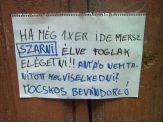 HA MÉG 1XER IDE MERSZ
SZARNI ÉLVE FOGLAK
ELÉGETNI!! ANYÁD NEM TA-
NÍTOTT MEG VISELKEDNI?
MOCSKOS BEVÁNDORLÓ